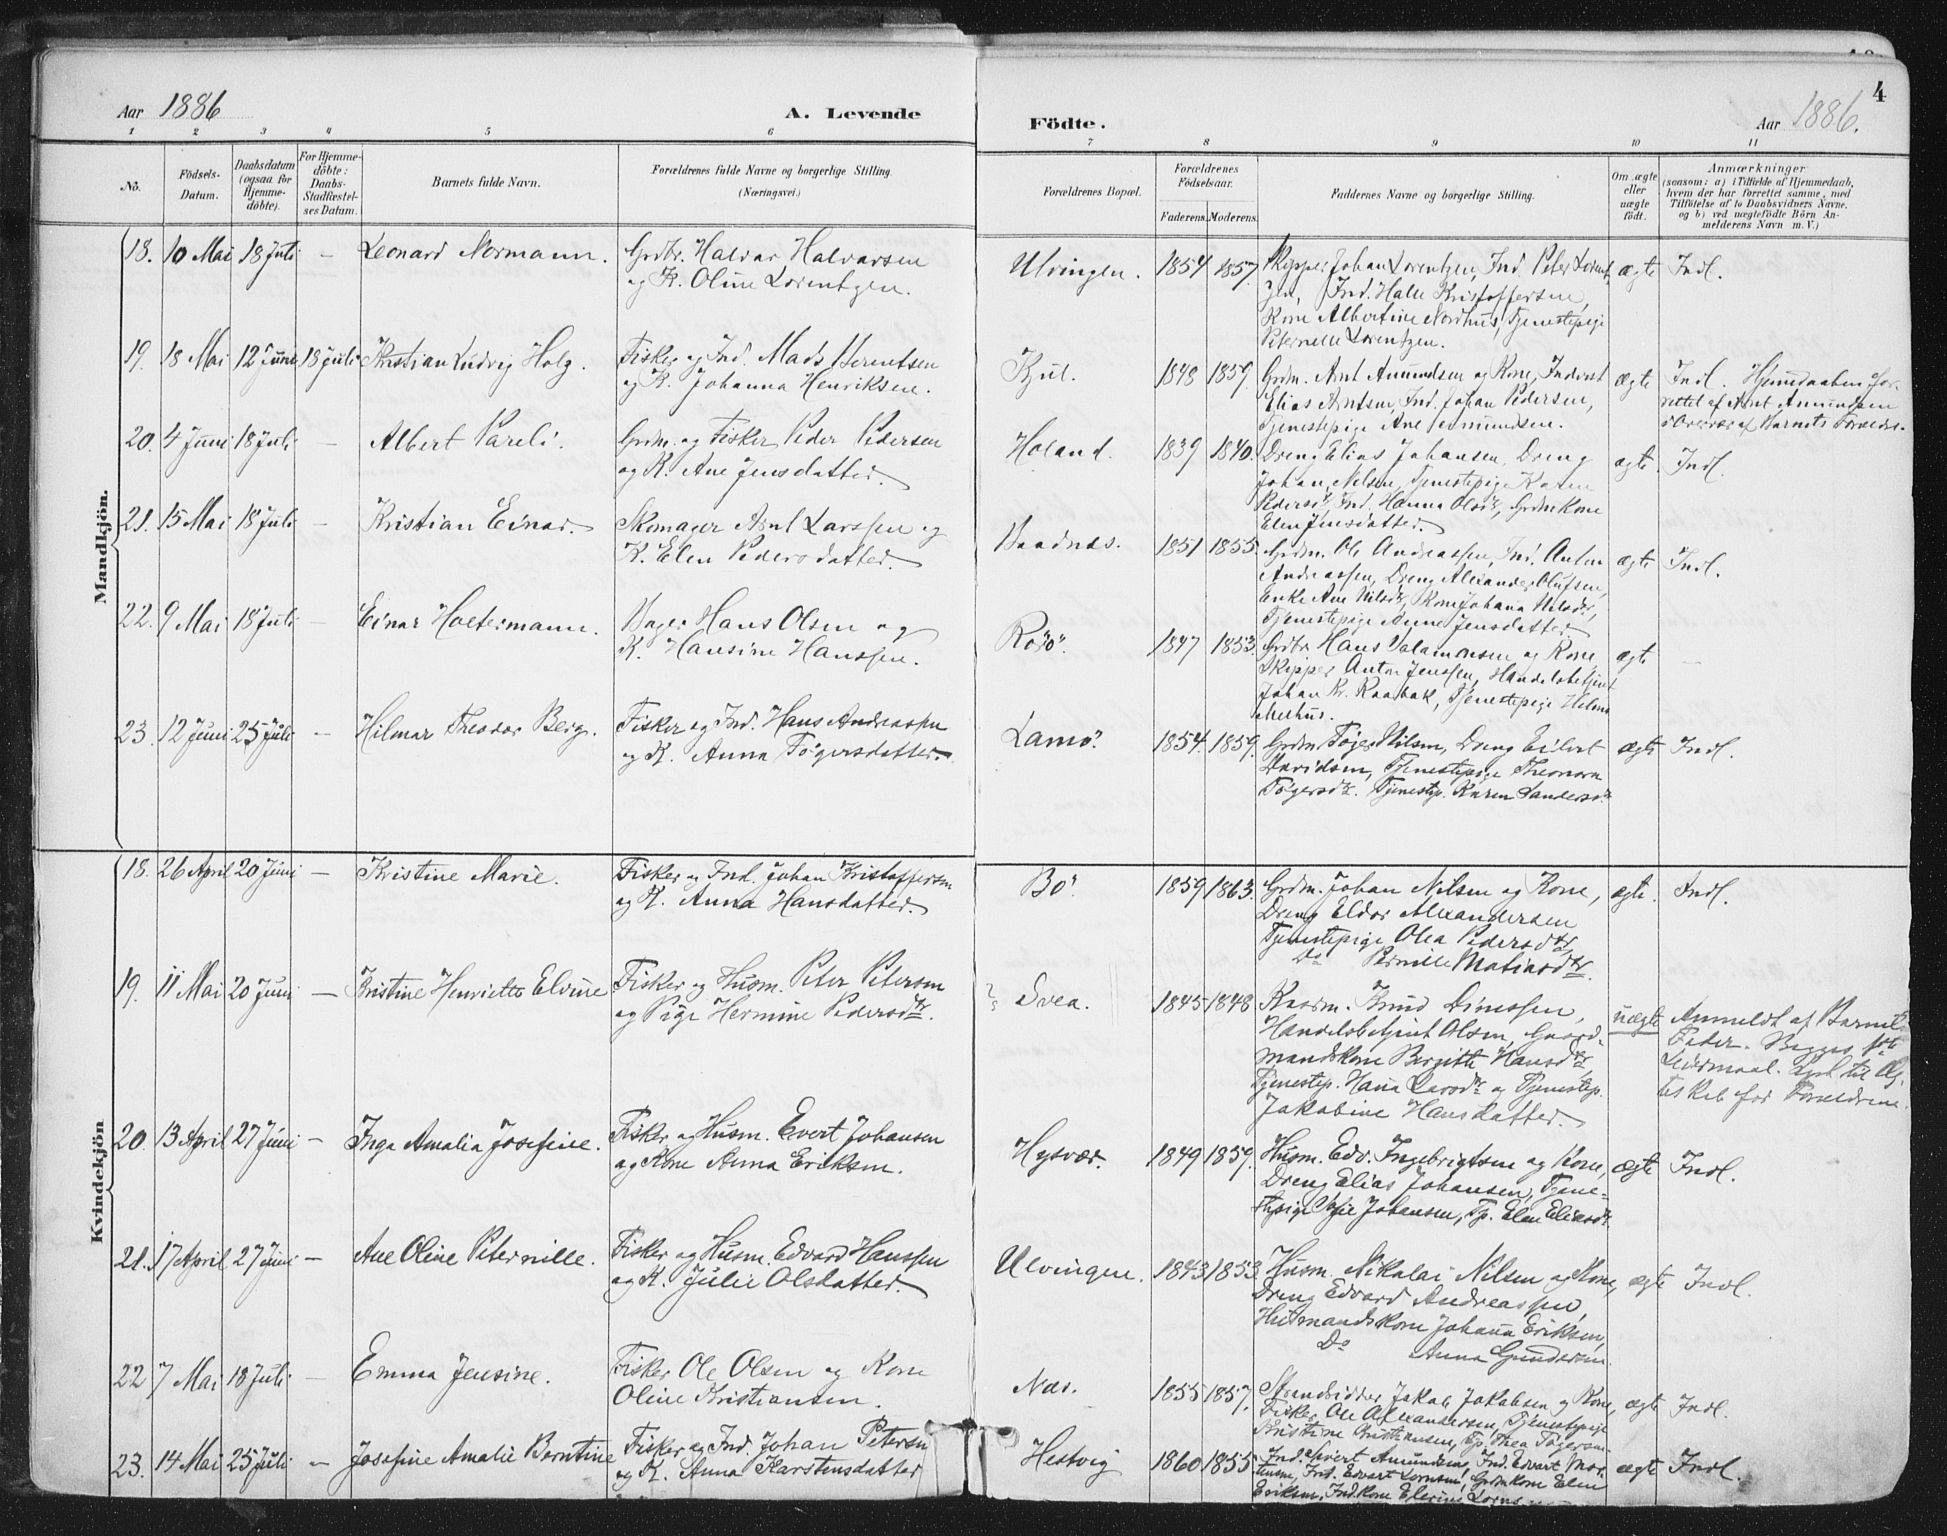 Aar 1886
A. Levende
1 2 3 4 5 6
No.
Födsels-
Datum.
Daabsdatum
(ogsaa for
Hjemme-
döbte).
For Hjemme-
döbte:
Daabs-
Stadfæstel-
ses Datum.
Barnets fulde Navn.
Forældrenes fulde Navne og borgerlige Stilling.
(Næringsvei.)
Mandkjön.
18. 10 Mai 18 Juli – Leonard Normann. Grdbr. Halvar Halvarsen
og K. Oline Lorentzen.
19. 18 Mai 12 Juni 18 Juli Kristian Ludvig Holg. Fisker og Ind. Mads Berntsen
og K. Johanna Henriksen.
20. 4 Juni 18 Juli – Albert Pareli. Grdm. og Fisker Peder Pedersen
og K. Ane Jensdatter.
21. 15 Mai 18 Juli – Kristian Einar. Skomager Arnt Larssen og
K. Elen Pedersdatter.
22. 9 Mai 18 Juli – Einar Holtermann. Bager Hans Olsen og
K. Hansine Hanssen.
23. 12 Juni 25 Juli – Hilmar Theodor Berg. Fisker og Ind. Hans Andreassen
og K. Anna Tögersdatter.
Kvindekjön
18. 26 April 20 Juni – Kristine Marie. Fisker og Ind. Johan Kristoffersen
og K. Anna Hansdatter.
19. 11 Mai 20 Juni – Kristine Henriette Elvine Fisker og Husm. Peter Petersen
og Pige Hermine Pedersdtr.
20. 13 April 27 Juni – Inga Amalia Josefine. Fisker og Husm. Evert Johansen
og Kone Anna Eriksen.
21. 17 April 27 Juni – Ane Oline Peternille. Fisker og Husm. Edvard Hanssen
og K. Julie Olsdatter.
22 7 Mai 18 Juli – Emma Jensine. Fisker Ole Olsen og Kone
Oline Kristiansen.
23. 14 Mai 25 Juli – Josefine Amalie Berntine Fisker og Ind. Johan Petersen
og K. Anna Karstensdatter
4
Födte.
Aar 1886.
7 8 9 10 11
Forældrenes Bopæl.
Forældrenes
Födselsaar.
Faderens. Moderens.
Faddernes Navne og borgerlige Stilling.
Om ægte
eller
uægte
födt.
Anmærkninger
(saasom: a) i Tilfælde af Hjemmedaab,
hvem der har forrettet samme, med
Tilföielse af to Daabsvidners Navne,
og b) ved uægtefödte Börn An-
melderens Navn m. V.)
Ulvingen. 1854 1857. Skipper Johan Lorentzen, Ind. Peter Lorent-
zen, Ind. Halle Kristoffersen,
Kone Albertine Nordhus, Tjenestepige
Peternelle Lorentzen.
ægte Indl.
Kjul. 1848 1859. Grdm. Arnt Amundsen og Kone, Inderst
Elias Arntsen, Ind. Johan Pedersen,
Tjenestepige Ane Amundsen.
ægte Indl. Hjemmedaaben for-
rettet af Arnt Amundsen
i Overvær af Barnets Forældre.
Holand. 1839 1840. Dreng Elias Johansen, Dreng
Johan Nilsen, Tjenestepige Karen
Pedersd., Ind. Hanna Olsd., Grdm.kone
Elen Jensdatter.
ægte. Indl.
Baadnæs. 1851 1855. Grdm. Ole Andreassen, Ind. Anton
Andreassen, Dreng Alexander Olufsen,
Enke Ane Nilsdtr., Kone Johana Nilsdtr.,
Tjenestepige Anne Jensdatter
ægte Indl.
Rörö. 1847 1853. Grdbr. Hans Salamonsen og Kone,
Skipper Anton Jenssen, Handelsbetjent
Johan Kr. Raabak, Tjenestepige Helma
Melhus.
ægte –
Lamö. 1854. 1859. Grdm. Töger Nilsen, Dreng Eilert
Davidsen, Tjenestepige Theonora
Tögersdtr. Tjenestp. Karen Sandersdtr.
ægte Indl.
Bö. 1859 1863. Grdm. Johan Nilsen og Kone,
Dreng Eldor Alexandersen
Tjenestepige Olea Pedersdtr.
Do Pernille Matiasdtr.
ægte. Indl.
Svea. 1845 1848 Kaarm. Knud Simonsen,
Handelsbetjent Olsen, Gaard-
mandskone Birgitte Hansdtr.
Tjenestep. Hana Larsdtr og Tjenestep.
Jakobine Hansdatter.
uægte Anmeldt af Barnets
Fader. Begges 1ste
Leiermaal. Lyst til Æg-
teskab for Forældrene.
Hysvær. 1849 1859. Husm. Edv. Ingebrigtsen og Kone,
Dreng Elias Johansen, Tjene-
stepige Sofie Johansen, Tp. Elen Eliasdtr.
ægte Indl.
Ulvingen. 1843 1853. Husm. Nikolai Nilsen og Kone,
Dreng Edvard Andreassen,
Husmandskone Johana Eriksen,
Do Anna Gundersen.
ægte Indl.
Næs. 1855 1857. Strandsidder Jakob Jakobsen og Kone,
Fisker Ole Alexandersen, Tjenestepige
Kristine Kristiansen, Tp. Thea Tögersen
ægte Indl.
Hestvig 1860 1855 Ind. Sivert Amundsen, Ind. Edvart Mor-
tensen, Ind. Edvart Lornsen, Grdm.kone Elen
Eriksen, Ind.kone Elerine Lorns
ægte Indl.